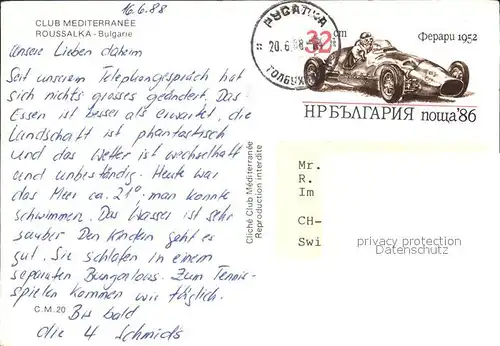 16.6.88
CLUB MEDITERRANÉE
ROUSSALKA - Bulgarie
Unsere Lieben daheim
Seit unserem Telephongespräch hat
sich nichts grosses geändert. Das
Essen ist besser als erwartet, die
Landschaft ist phantastisch
und das Wetter ist wechselhaft
und unbeständig. Heute war
das Meer ca. 21° man konnte
schwimmen. Das Wasser ist sehr
sauber Den Kindern geht es
gut. Sie schlafen in einem
separaten Bungalow. Zum Tennis-
spielen kommen wir täglich.
C.M.20 Bis bald
die 4 Schmids
Cliché Club Méditerranée
Reproduction interdite
РУСАЛКА
20.6.88
ТОЛБУХ
32 ст
Ферари 1952
НР БЪЛГАРИЯ поща'86
Mr.
R.
Im
CH-
Swi
privacy protection
Datenschutz